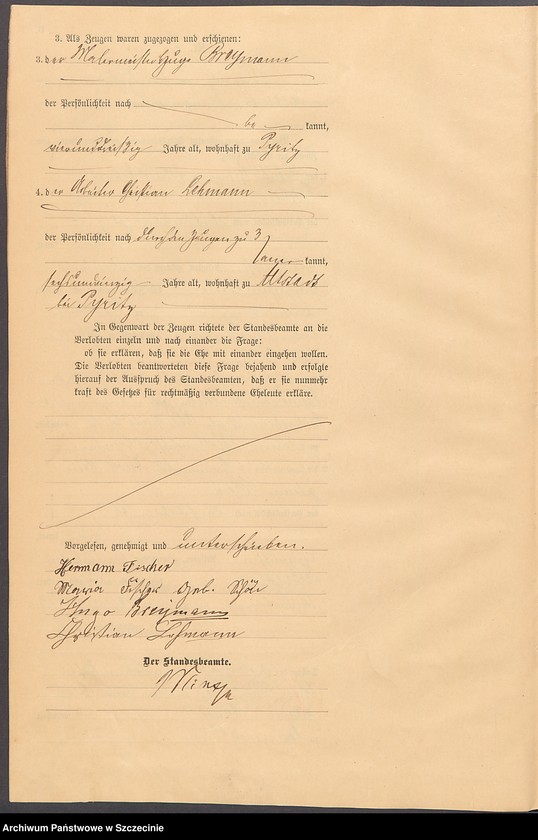 3. Als Zeugen waren zugezogen und erschienen:
3. der Malermeister Hugo
der Persönlichkeit nach
be kannt,
vierunddreißig Jahre alt, wohnhaft zu Pyritz
4. der Arbeiter Christian Lehmann
der Persönlichkeit nach durch den Zeugen zu 3
kannt,
Jahre alt, wohnhaft zu Altstadt
bei Pyritz
In Gegenwart der Zeugen richtete der Standesbeamte an die
Verlobten einzeln und nach einander die Frage:
ob sie erklären, daß sie die Ehe mit einander eingehen wollen.
Die Verlobten beantworteten diese Frage bejahend und erfolgte
hierauf der Ausspruch des Standesbeamten, daß er sie nunmehr
kraft des Gesetzes für rechtmäßig verbundene Eheleute erkläre.
Vorgelesen, genehmigt und unterschrieben.
Hermann Fischer
Maria Fischer geb.
Hugo
Christian Lehmann
Der Standesbeamte.
Archiwum Państwowe w Szczecinie